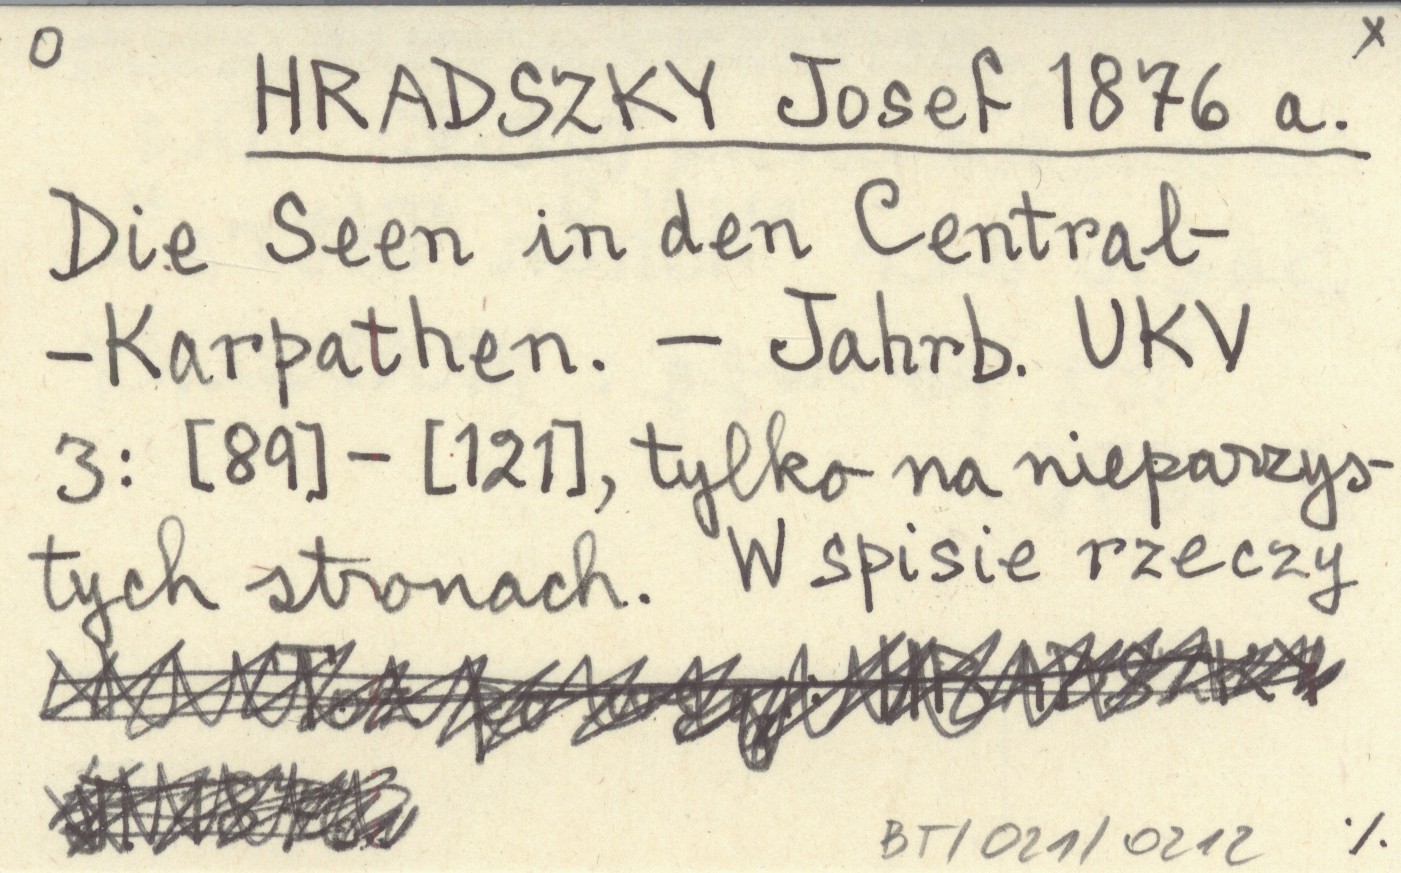 O X
HRADSZKY Josef 1876 a.
Die Seen in den Central-
-Karpathen. – Jahrb. UKV
3: [89] – [121], tylko na nieparzys-
tych stronach. W spisie rzeczy
BT/021/0212 ·/.